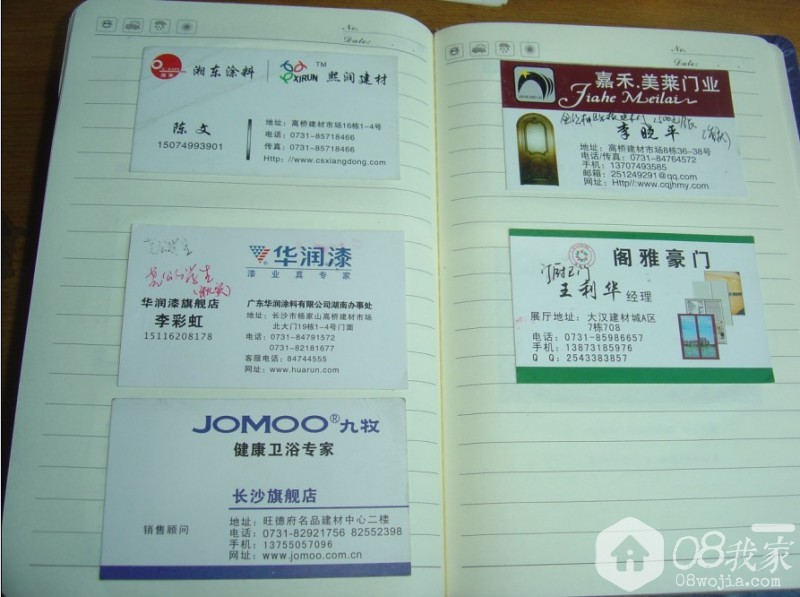 No.
Date:
湘东涂料
XIRUN
TM
熙润建材
陈 文
15074993901
地址：高桥建材市场16栋1-4号
电话：0731-85718466
传真：0731-85718466
Http：//www.csxiangdong.com
华润漆
漆业真专家
华润漆旗舰店
李彩虹
15116208178
广东华润涂料有限公司湖南办事处
地址：长沙市杨家山高桥建材市场
北大门19栋1-4号门面
电话：0731-84791572
0731-82181677
客服电话：84744555
网址：www.huarun.com
JOMOO®九牧
健康卫浴专家
长沙旗舰店
销售顾问
地址：旺德府名品建材中心二楼
电话：0731-82921756 82552398
手机：13755057096
网址：www.jomoo.com.cn
No.
Date:
嘉禾.美莱门业
Jiahe Meilai
李晓平
地址：高桥建材市场8栋36-38号
电话/传真：0731-84764572
手机：13707493585
邮箱：251249291@qq.com
网址：Http//:www.cqjhmy.com
阁雅豪门
王利华 经理
展厅地址：大汉建材城A区
7栋708
电话：0731-85986657
手机：13873185976
Q Q：2543383857
08我家
08wojia.com